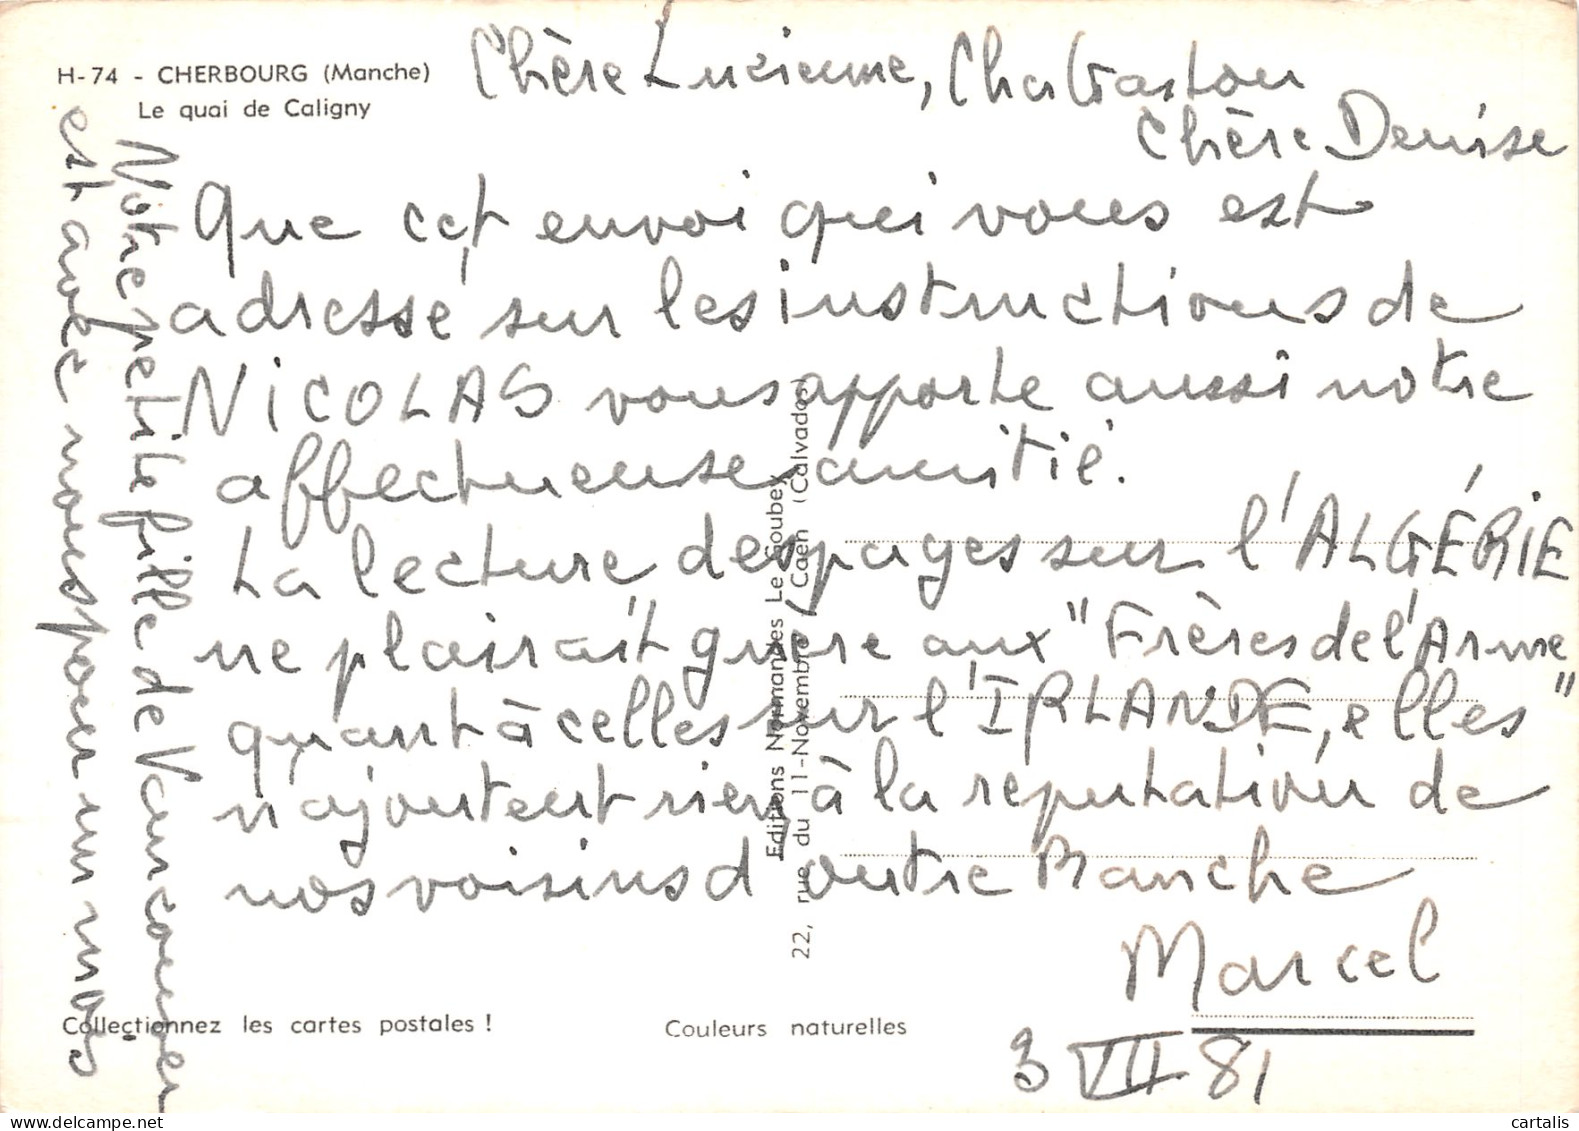 H-74 - CHERBOURG (Manche)
Le quai de Caligny
Chère Lucienne, Cher Gaston
Chère Denise
Que cet envoi qui vous est
adressé sur les instructions de
NICOLAS vous apporte aussi notre
affectueuse amitié.
La lecture des pages sur l'ALGÉRIE
ne plairait guère aux "Frères de l'Arme"
quant à celles sur l'IRLANDE, elles
n'ajoutent rien à la réputation de
nos voisins d'outre Manche
Marcel
3 VII 81
Notre petite fille de Vancouver
est avec nous pour un mois
Editions Normandes Le Goubey
22, rue du 11-Novembre, Caen (Calvados)
Collectionnez les cartes postales !
Couleurs naturelles
cartalis